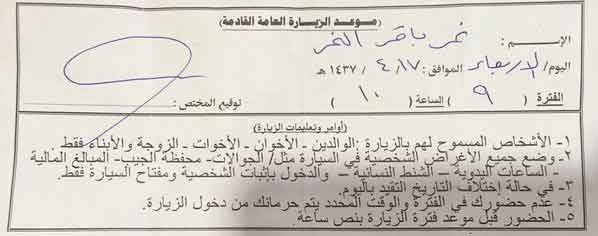 (موعد الزيارة العامة القادمة)
الإسم: نمر باقر النمر
اليوم/ الاربعاء الموافق: ١٧/ ٤/ ١٤٣٧ هـ
الفترة ( ٩ ) الساعة ( ١٠ ) توقيع المختص:
(أوامر وتعليمات الزيارة)
١- الأشخاص المسموح لهم بالزيارة :الوالدين - الأخوان - الأخوات - الزوجة والأبناء فقط.
٢- وضع جميع الأغراض الشخصية في السيارة مثل/ الجوالات- محفظة الجيب- المبالغ المالية
- الساعات اليدوية - الشنط النسائية - والدخول بإثبات الشخصية ومفتاح السيارة فقط.
٣- في حالة إختلاف التاريخ التقيد باليوم.
٤- عدم حضورك في الفترة والوقت المحدد يتم حرمانك من دخول الزيارة.
٥- الحضور قبل موعد فترة الزيارة بنص ساعة.